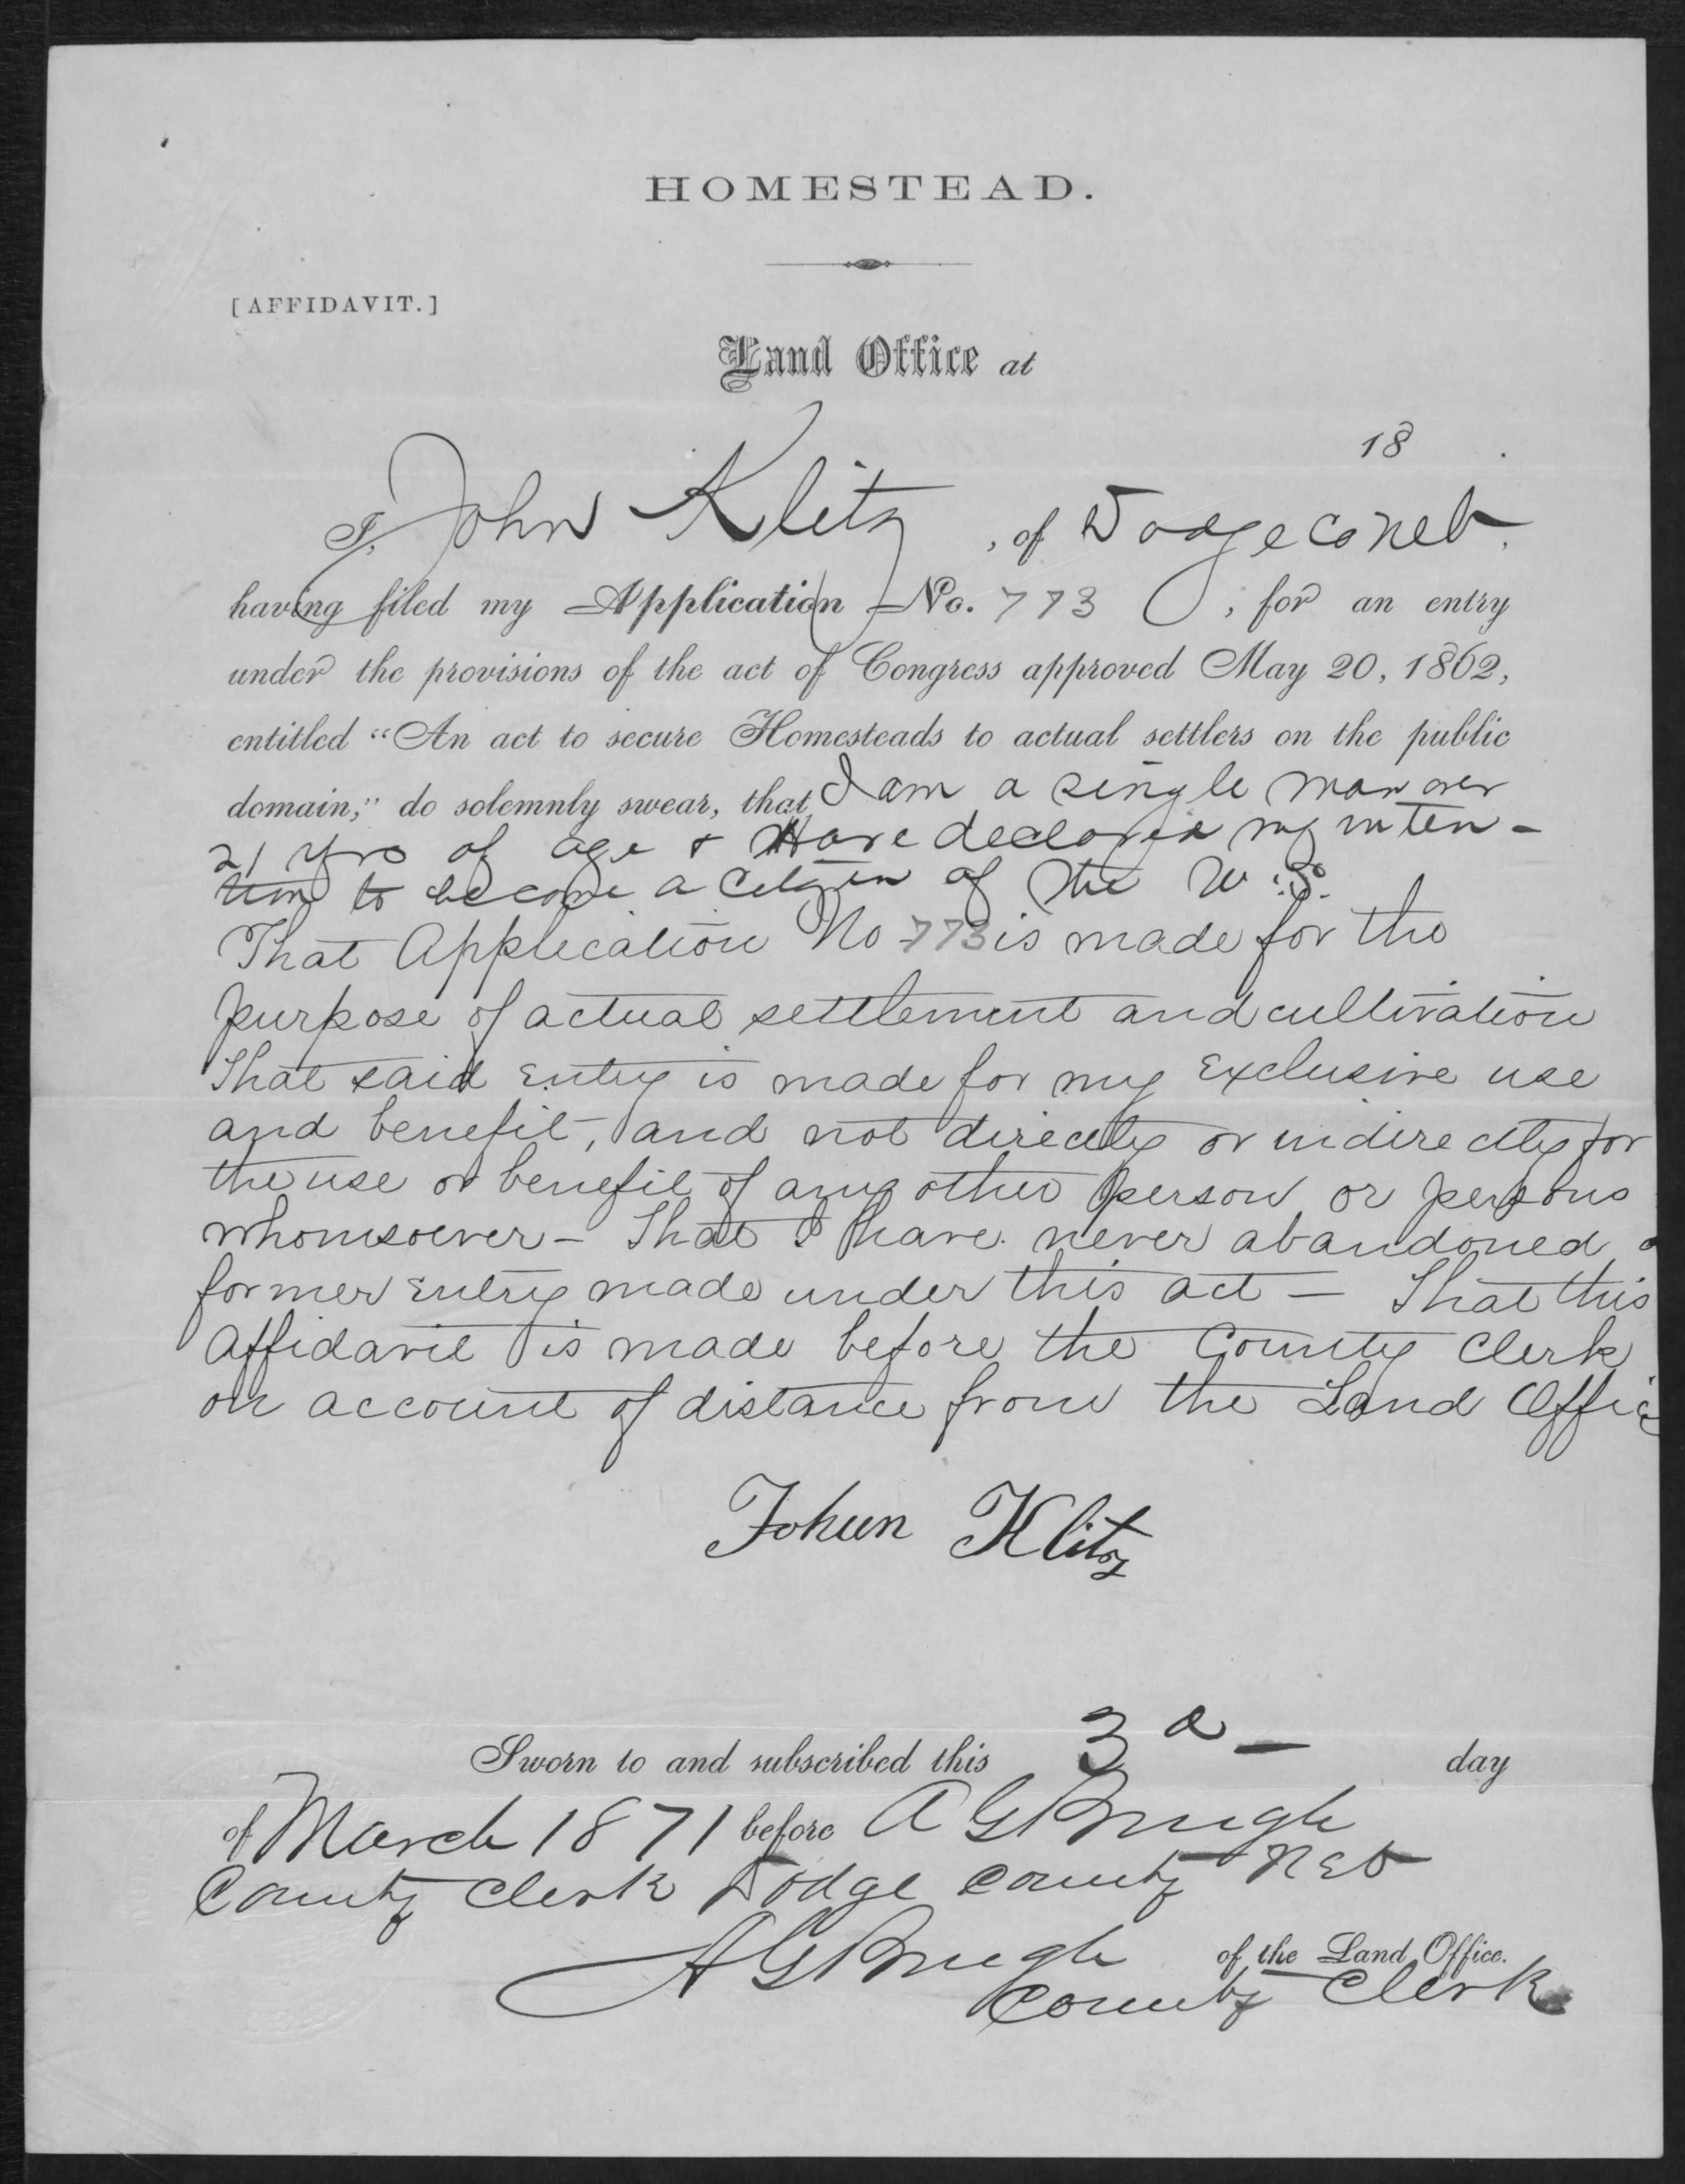 HOMESTEAD.
[AFFIDAVIT.]
Land Office at
18 .
I, John Klitz, of Dodge Co Neb.
having filed my Application No. 773, for an entry
under the provisions of the act of Congress approved May 20, 1862,
entitled "An act to secure Homesteads to actual settlers on the public
domain," do solemnly swear, that I am a single man over
21 yrs of age & Have declared my inten-
tion to become a Citizen of the U.S.
That Application No 773 is made for the
purpose of actual settlement and cultivation
That said Entry is made for my Exclusive use
and benefit, and not directly or indirectly for
the use or benefit of any other person or persons
whomsoever - That I have never abandoned a
former Entry made under this act - That this
Affidavit is made before the County Clerk
on account of distance from the Land Offic
Johun Klitz
Sworn to and subscribed this 3d day
of March 1871 before A G Brugh
County Clerk Dodge County Neb
A G Brugh of the Land Office.
County Clerk